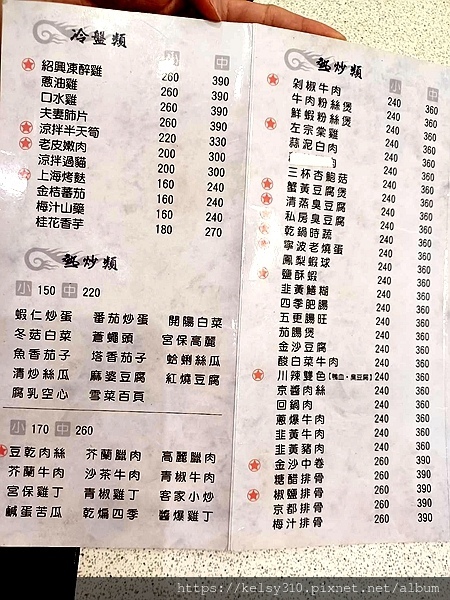 冷盤類
小 中
紹興凍醉雞 260 390
蔥油雞 260 390
口水雞 260 390
夫妻肺片 260 390
涼拌半天筍 220 330
老皮嫩肉 200 300
涼拌過貓 200 300
上海烤麩 160 240
金桔蕃茄 160 240
梅汁山藥 160 240
桂花香芋 180 270
熱炒類
小 150 中 220
蝦仁炒蛋 番茄炒蛋 開陽白菜
冬菇白菜 蒼蠅頭 宮保高麗
魚香茄子 塔香茄子 蛤蜊絲瓜
清炒絲瓜 麻婆豆腐 紅燒豆腐
腐乳空心 雪菜百頁
小 170 中 260
豆乾肉絲 芥蘭臘肉 高麗臘肉
芥蘭牛肉 沙茶牛肉 青椒牛肉
宮保雞丁 青椒雞丁 客家小炒
鹹蛋苦瓜 乾煸四季 醬爆雞丁
熱炒類
小 中
剁椒牛肉 240 360
牛肉粉絲煲 240 360
鮮蝦粉絲煲 240 360
左宗棠雞 240 360
蒜泥白肉 240 360
肉 240 360
三杯杏鮑菇 240 360
蟹黃豆腐煲 240 360
清蒸臭豆腐 240 360
私房臭豆腐 240 360
乾鍋時蔬 240 360
寧波老燒蛋 240 360
鳳梨蝦球 240 360
鹽酥蝦 240 360
韭黃鱔糊 240 360
四季肥腸 240 360
五更腸旺 240 360
茄腸煲 240 360
金沙豆腐 240 360
酸白菜牛肉 240 360
川辣雙色【鴨血、臭豆腐】 240 360
京醬肉絲 240 360
回鍋肉 240 360
蔥爆牛肉 240 360
韭黃牛肉 240 360
韭黃豬肉 240 360
金沙中卷 260 390
糖醋排骨 260 390
椒鹽排骨 260 390
京都排骨 260 390
梅汁排骨 260 390
https://kelsy310.pixnet.net/album